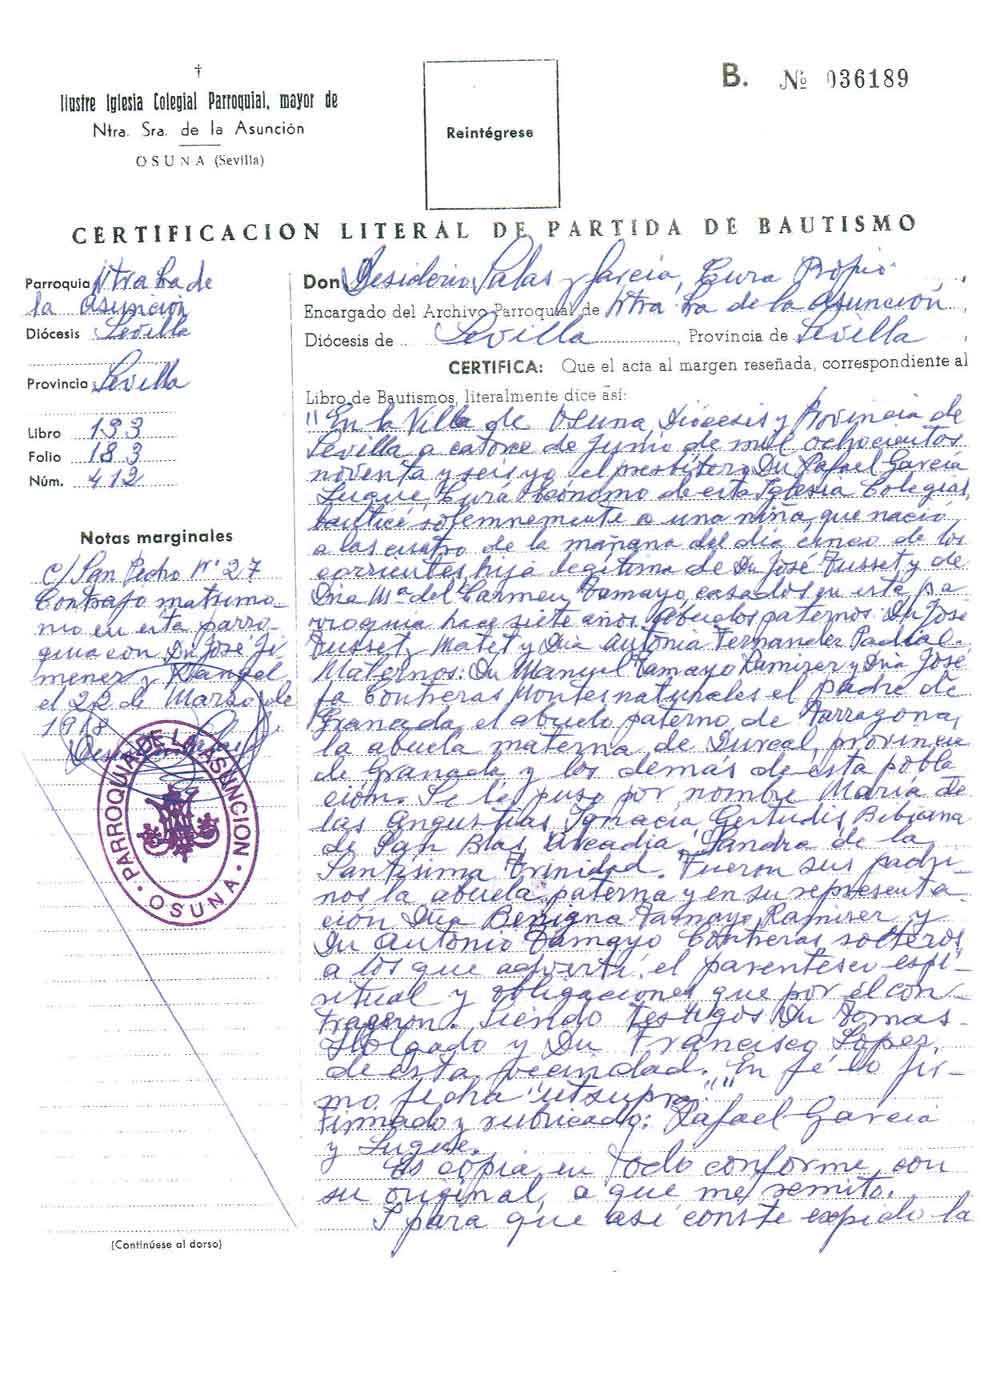 †
Ilustre Iglesia Colegial Parroquial, mayor de
Ntra. Sra. de la Asunción
OSUNA (Sevilla)
Reintégrese
B. Nº 036189
CERTIFICACION LITERAL DE PARTIDA DE BAUTISMO
Parroquia Ntra Sra de
la Asunción
Diócesis Sevilla
Provincia Sevilla
Libro 193
Folio 183
Núm. 412
Notas marginales
C/ San Pedro Nº 27
Contrajo matrimo-
nio en esta parro-
quia con Dn José Ji
menez y Rangel
el 22 de Marzo de
1918
PARROQUIA DE LA ASUNCION · OSUNA ·
(Continúese al dorso)
Don Desiderio Salas y García, Cura Propio,
Encargado del Archivo Parroquial de Ntra Sra de la Asunción
Diócesis de Sevilla, Provincia de Sevilla,
CERTIFICA: Que el acta al margen reseñada, correspondiente al
Libro de Bautismos, literalmente dice así:
"En la Villa de Osuna, Diócesis y Provincia de
Sevilla a catorce de Junio de mil ochocientos
noventa y seis yo el presbitero Dn Rafael García
Luque, Cura Ecónomo de esta Iglesia Colegial,
bauticé solemnemente a una niña que nació
a las cuatro de la mañana del día cinco de los
corrientes, hija legitima de Dn José Fusset y de
Dña Mª del Carmen Tamayo, casados en esta pa
rroquia hace siete años. Abuelos paternos: Dn José
Fusset Matet y Dña Antonia Fernandez Padial.
Maternos: Dn Manuel Tamayo Ramirez y Dña Jose
fa Contreras Montes naturales el padre de
Granada, el abuelo paterno de Tarragona,
la abuela materna de Durcal, provincia
de Granada y los demás de esta pobla
ción. Se le puso por nombre María de
las Angustias, Ignacia, Gertudis, Bibiana
de San Blas, Arcadia, Sandra de la
Santisima Trinidad. Fueron sus padri-
nos la abuela paterna y en su representa
ción Dña Benigna Tamayo Ramirez y
Dn Antonio Tamayo Contreras, solteros,
a los que advertí el parentesco espi-
ritual y obligaciones que por el con-
trageron. Siendo testigos Dn Tomas
Holgado y Dn Francisco Lopez,
de esta vecindad. En fé lo fir-
mo fecha "utsupra"."
Firmado y rubricado: Rafael García
y Luque.
Es copia en todo conforme con
su original, a que me remito.
I para que así conste expido la